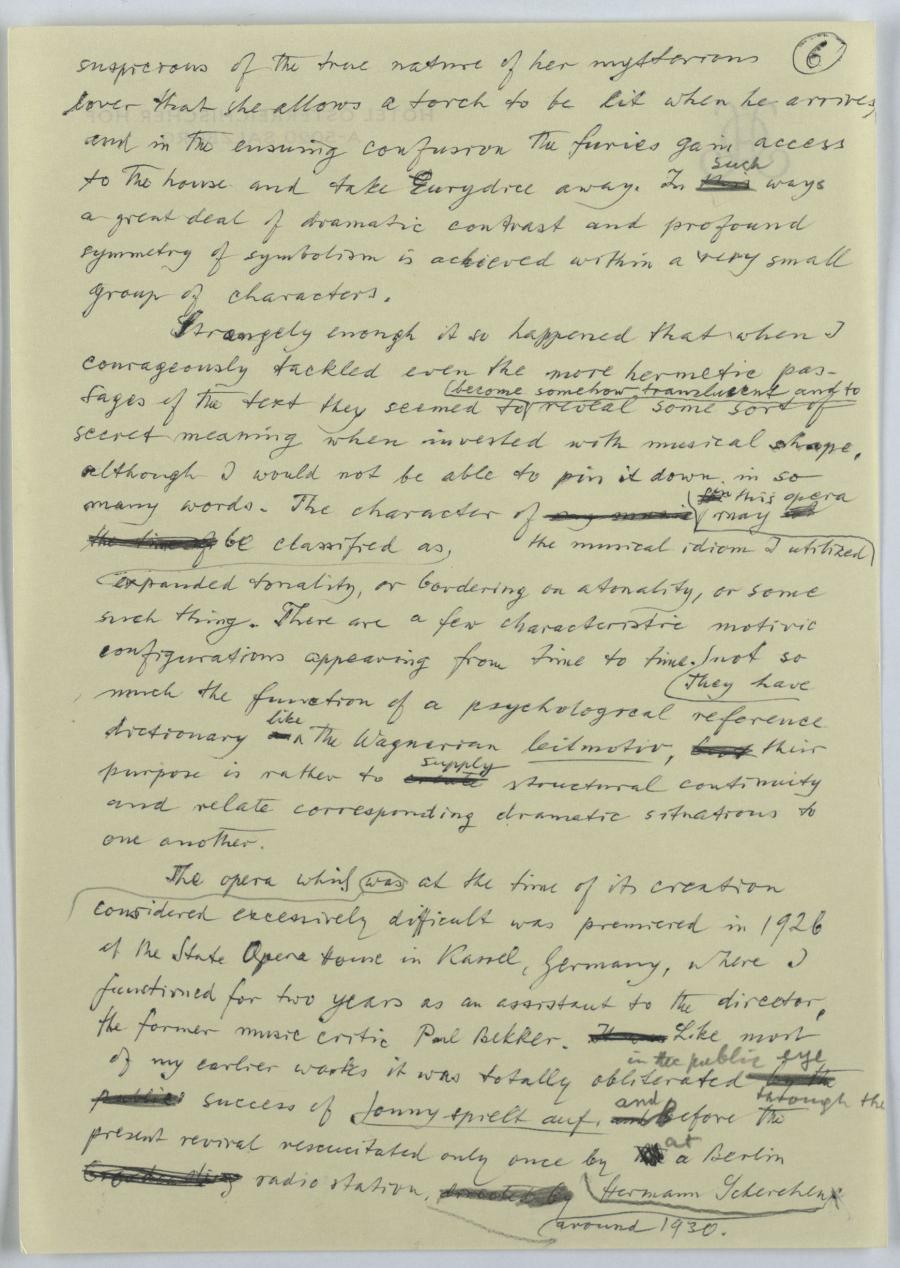 6
suspicious of the true nature of her mysterious
lover that she allows a torch to be lit when he arrives,
and in the ensuing confusion the furies gain access
such
to the house and take Eurydice away. In this ways
a great deal of dramatic contrast and profound
symmetry of symbolism is achieved within a very small
group of characters.
Strangely enough it so happened that when I
courageously tackled even the more hermetic pas-
become somehow translucent and to
sages of the text they seemed to reveal some sort of
secret meaning when invested with musical shape,
although I would not be able to pin it down in so
this opera
many words. The character of my music may
the time of be classified as, the musical idiom I utilized
expanded tonality, or bordering on atonality, or some
such thing. There are a few characteristic motivic
configurations appearing from time to time. not so
They have
much the function of a psychological reference
like
dictionary in the Wagnerian leitmotiv, but their
supply
purpose is rather to create structural continuity
and relate corresponding dramatic situations to
one another.
The opera which was at the time of its creation
considered excessively difficult was premiered in 1926
at the State Opera House in Kassel, Germany, where I
functioned for two years as an assistant to the director,
the former music critic Paul Bekker. It was Like most
in the public eye
of my earlier works it was totally obliterated by the
through the
public success of Jonny spielt auf, and before the
and
at
present revival resuscitated only once by a Berlin
Broadcasting radio station, directed by Hermann Scherchen
around 1930.
HOTEL ÖSTERREICHISCHER HOF
A-5020 SALZBURG